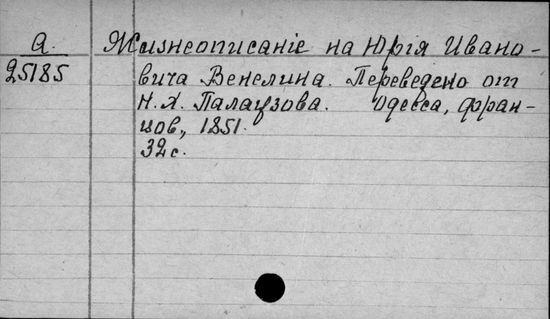 А.
25185
Жизнеописаніе на Юрія Ивано-
вича Венелина. Переведено от
Н. Х. Палаузова. Одесса, Фран-
цов, 1851.
32 с.